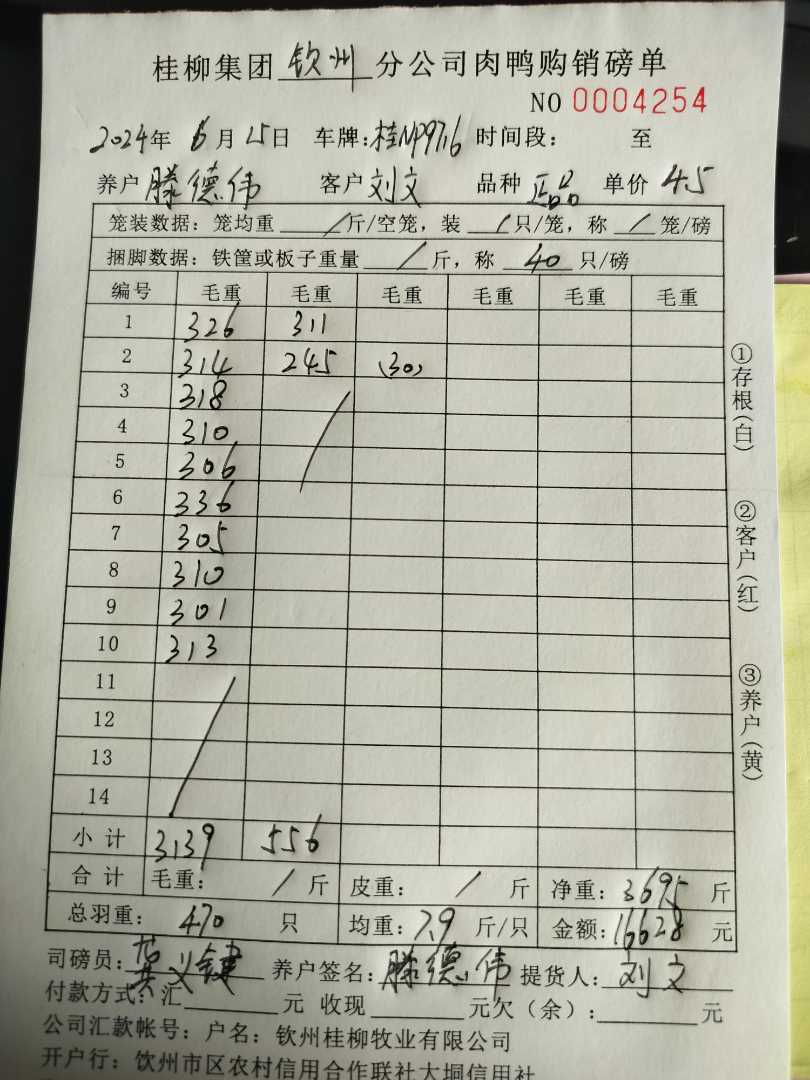 桂柳集团 钦州 分公司肉鸭购销磅单
NO 0004254
2024年 6月 15日 车牌: 时间段: 至
养户 滕德伟 客户 刘文 品种 正品 单价 4.5
笼装数据: 笼均重 / 斤/空笼, 装 / 只/笼, 称 / 笼/磅
捆脚数据: 铁筐或板子重量 / 斤, 称 40 只/磅
编号 毛重 毛重 毛重 毛重 毛重 毛重
1 326 311
2 314 245 (30)
3 318
4 310
5 306
6 336
7 305
8 310
9 301
10 313
11
12
13
14
小计 3139 556
合计 毛重: / 斤 皮重: / 斤 净重: 3695 斤
总羽重: 470 只 均重: 7.9 斤/只 金额: 16628 元
司磅员: 义键 养户签名: 滕德伟 提货人: 刘文
付款方式: 汇 元 收现 元欠(余): 元
公司汇款帐号: 户名: 钦州桂柳牧业有限公司
开户行: 钦州市区农村信用合作联社大垌信用社
①存根(白)
②客户(红)
③养户(黄)